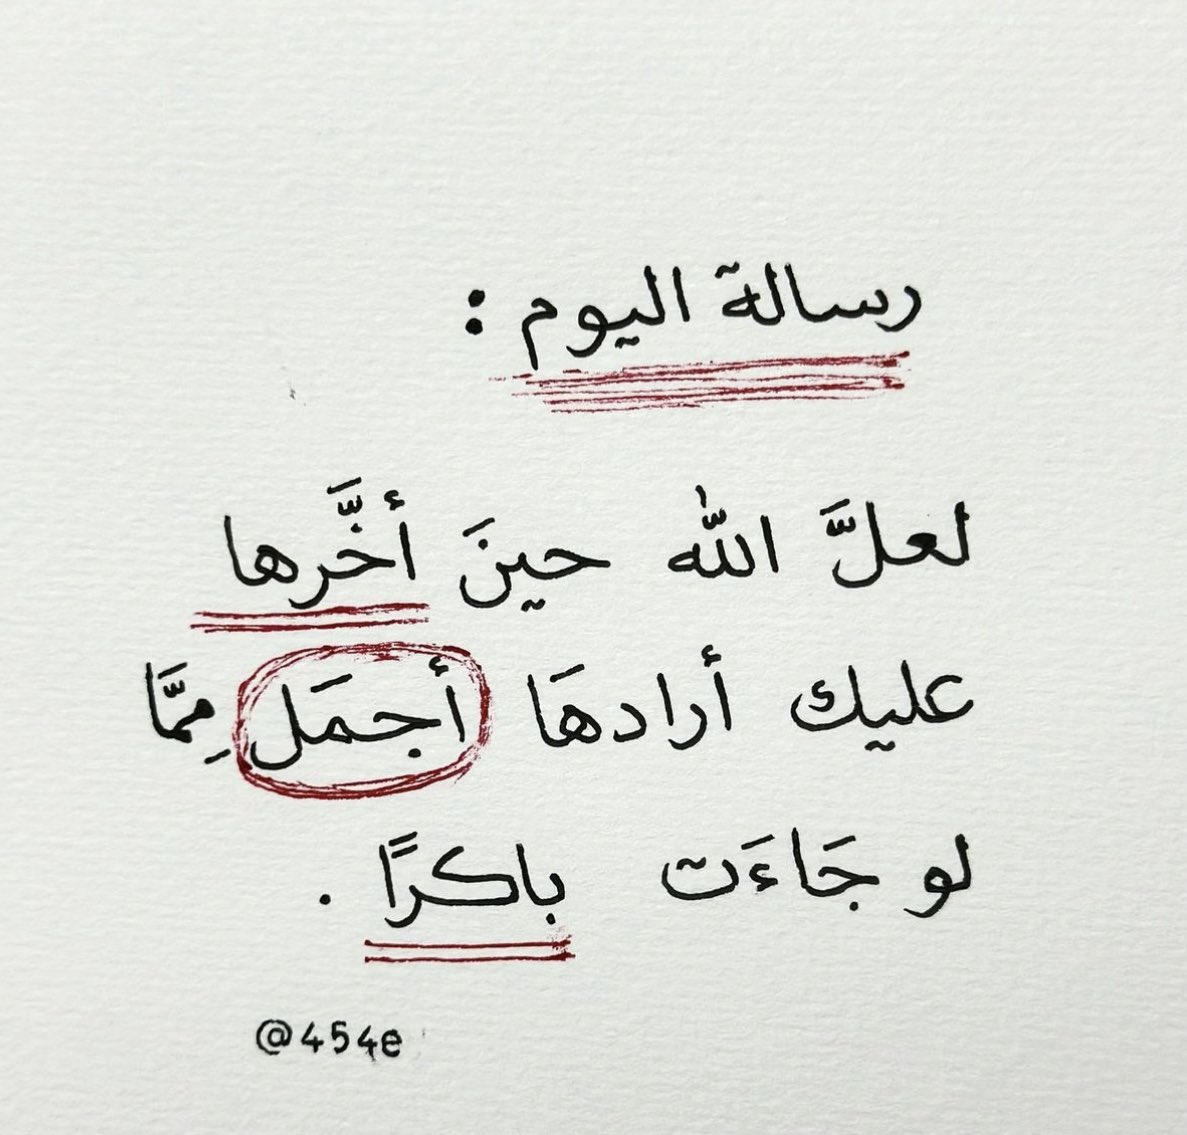 رسالة اليوم :
لعلَّ الله حينَ أخَّرها
عليك أرادهَا أجمَل مِمَّا
لو جَاءَت باكرًا .
@454e